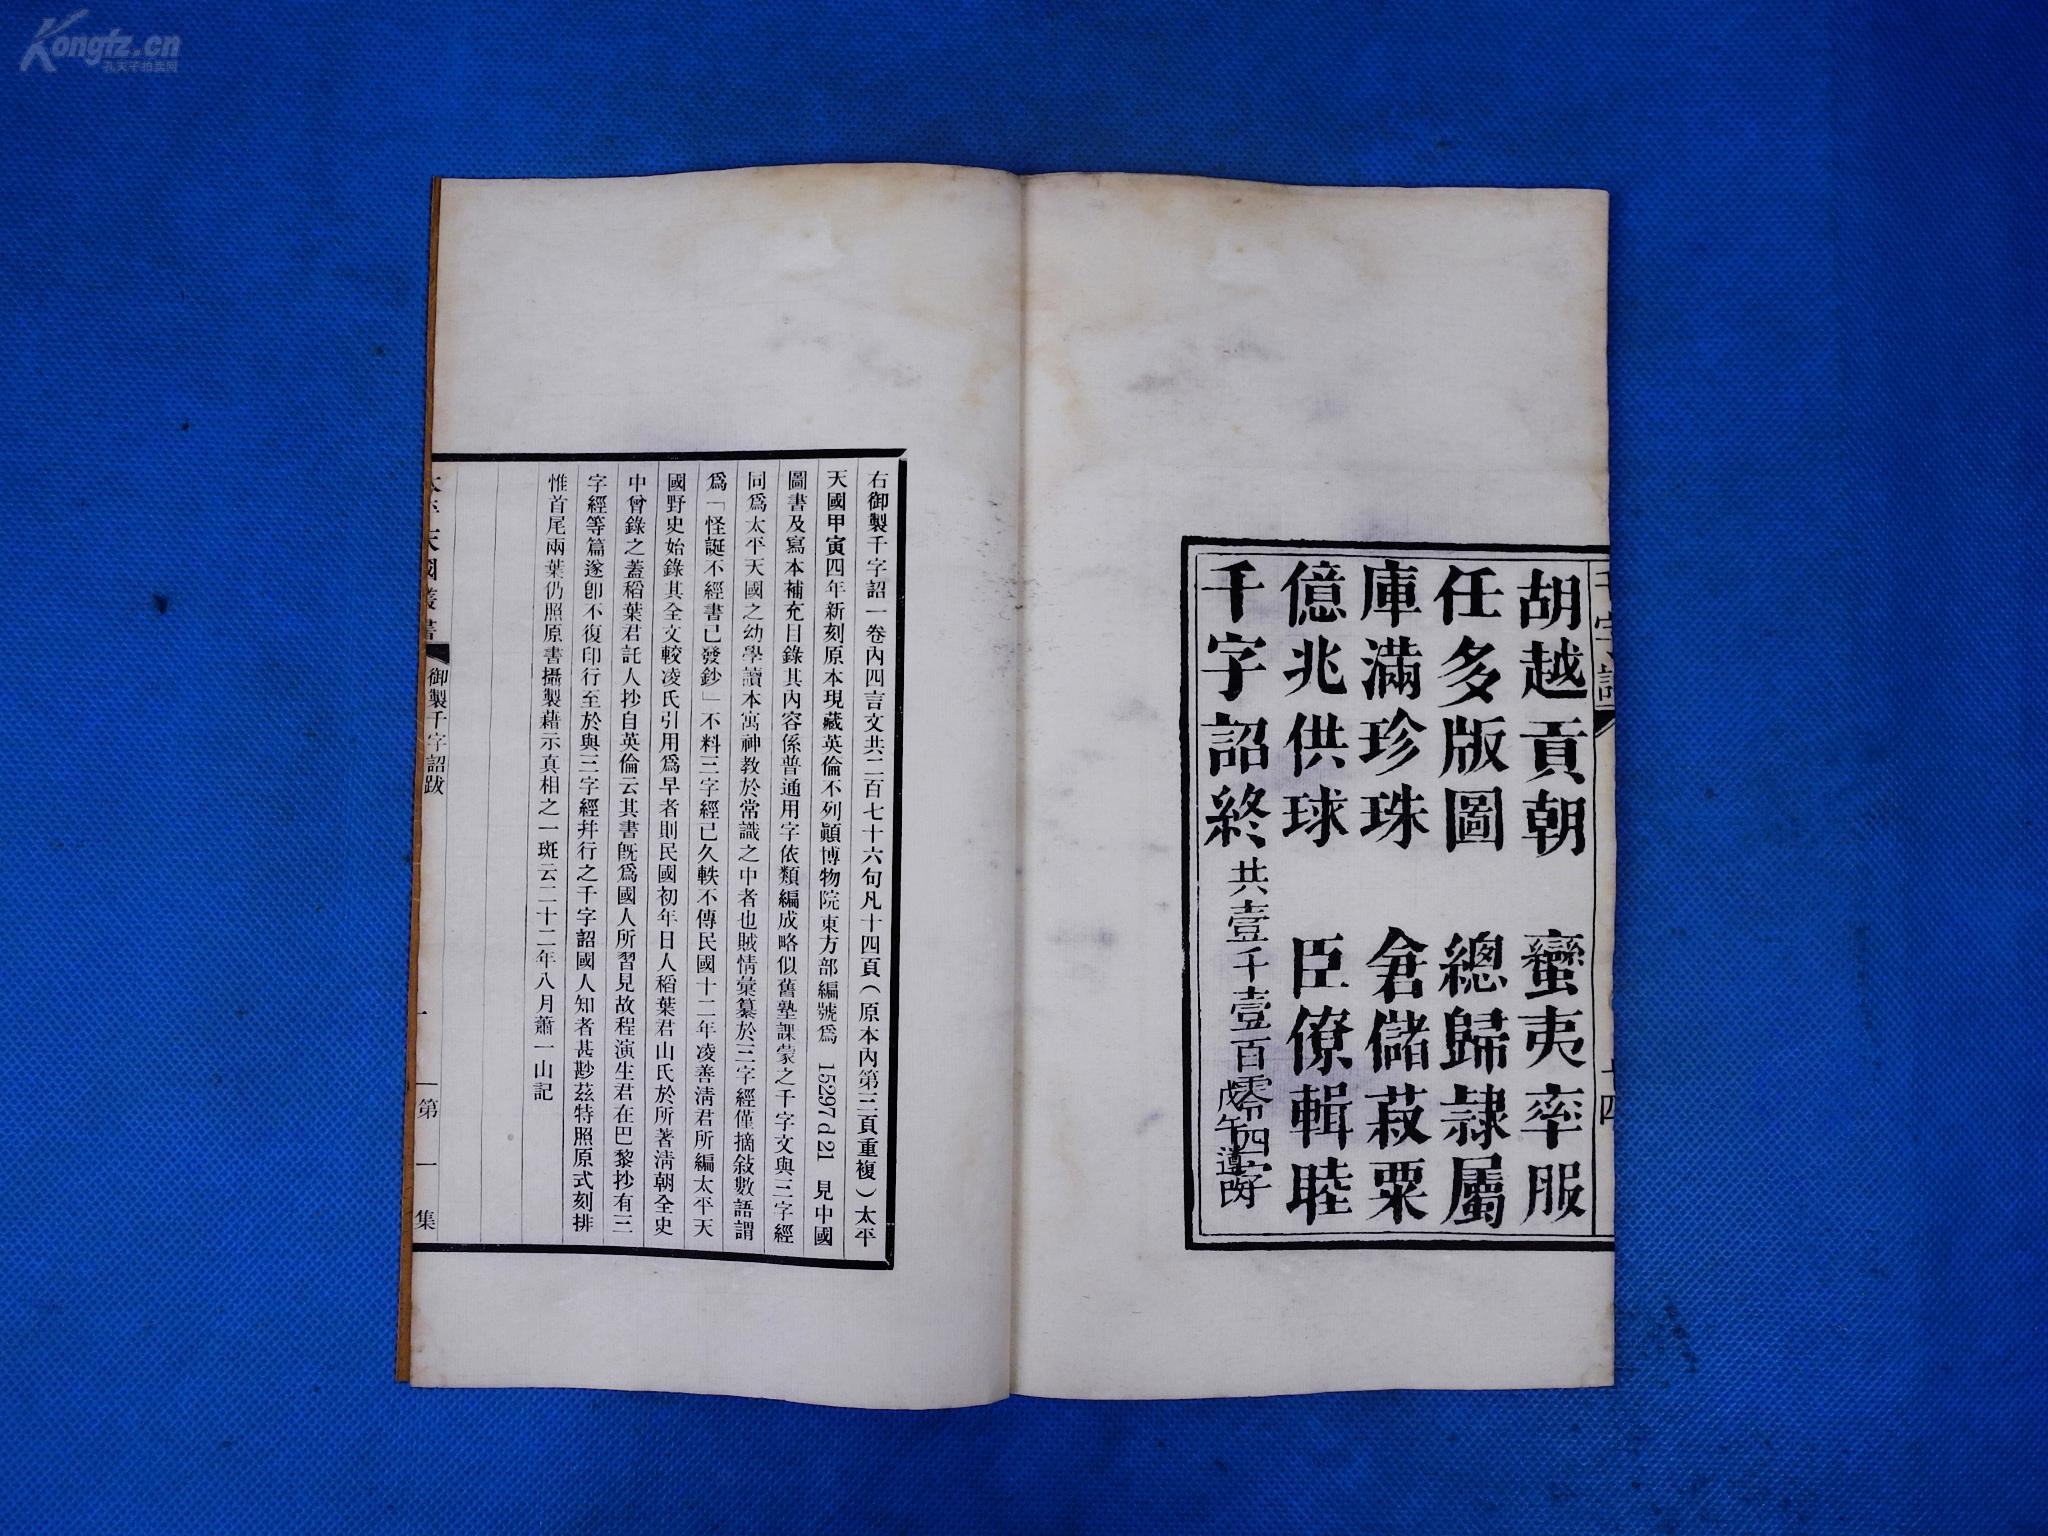 Kongfz.cn
孔夫子拍卖网
千字詔
十四
胡越貢朝　蠻夷率服
任多版圖　總歸隷屬
庫滿珍珠　倉儲菽粟
億兆供球　臣僚輯睦
千字詔終
共壹千壹百零四字
戊午遵改
右御製千字詔一卷內四言文共二百七十六句凡十四頁（原本內第三頁重複）太平
天國甲寅四年新刻原本現藏英倫不列顚博物院東方部編號爲　15297 d 21　見中國
圖書及寫本補充目錄其內容係普通用字依類編成略似舊塾課蒙之千字文與三字經
同爲太平天國之幼學讀本寓神教於常識之中者也賊情彙纂於三字經僅摘敍數語謂
爲「怪誕不經書已發鈔」不料三字經已久軼不傳民國十二年凌善淸君所編太平天
國野史始錄其全文較凌氏引用爲早者則民國初年日人稻葉君山氏於所著淸朝全史
中曾錄之蓋稻葉君託人抄自英倫云其書旣爲國人所習見故程演生君在巴黎抄有三
字經等篇遂卽不復印行至於與三字經幷行之千字詔國人知者甚尠茲特照原式刻排
惟首尾兩葉仍照原書攝製藉示真相之一斑云二十二年八月蕭一山記
太平天國叢書
御製千字詔跋
一
第一集